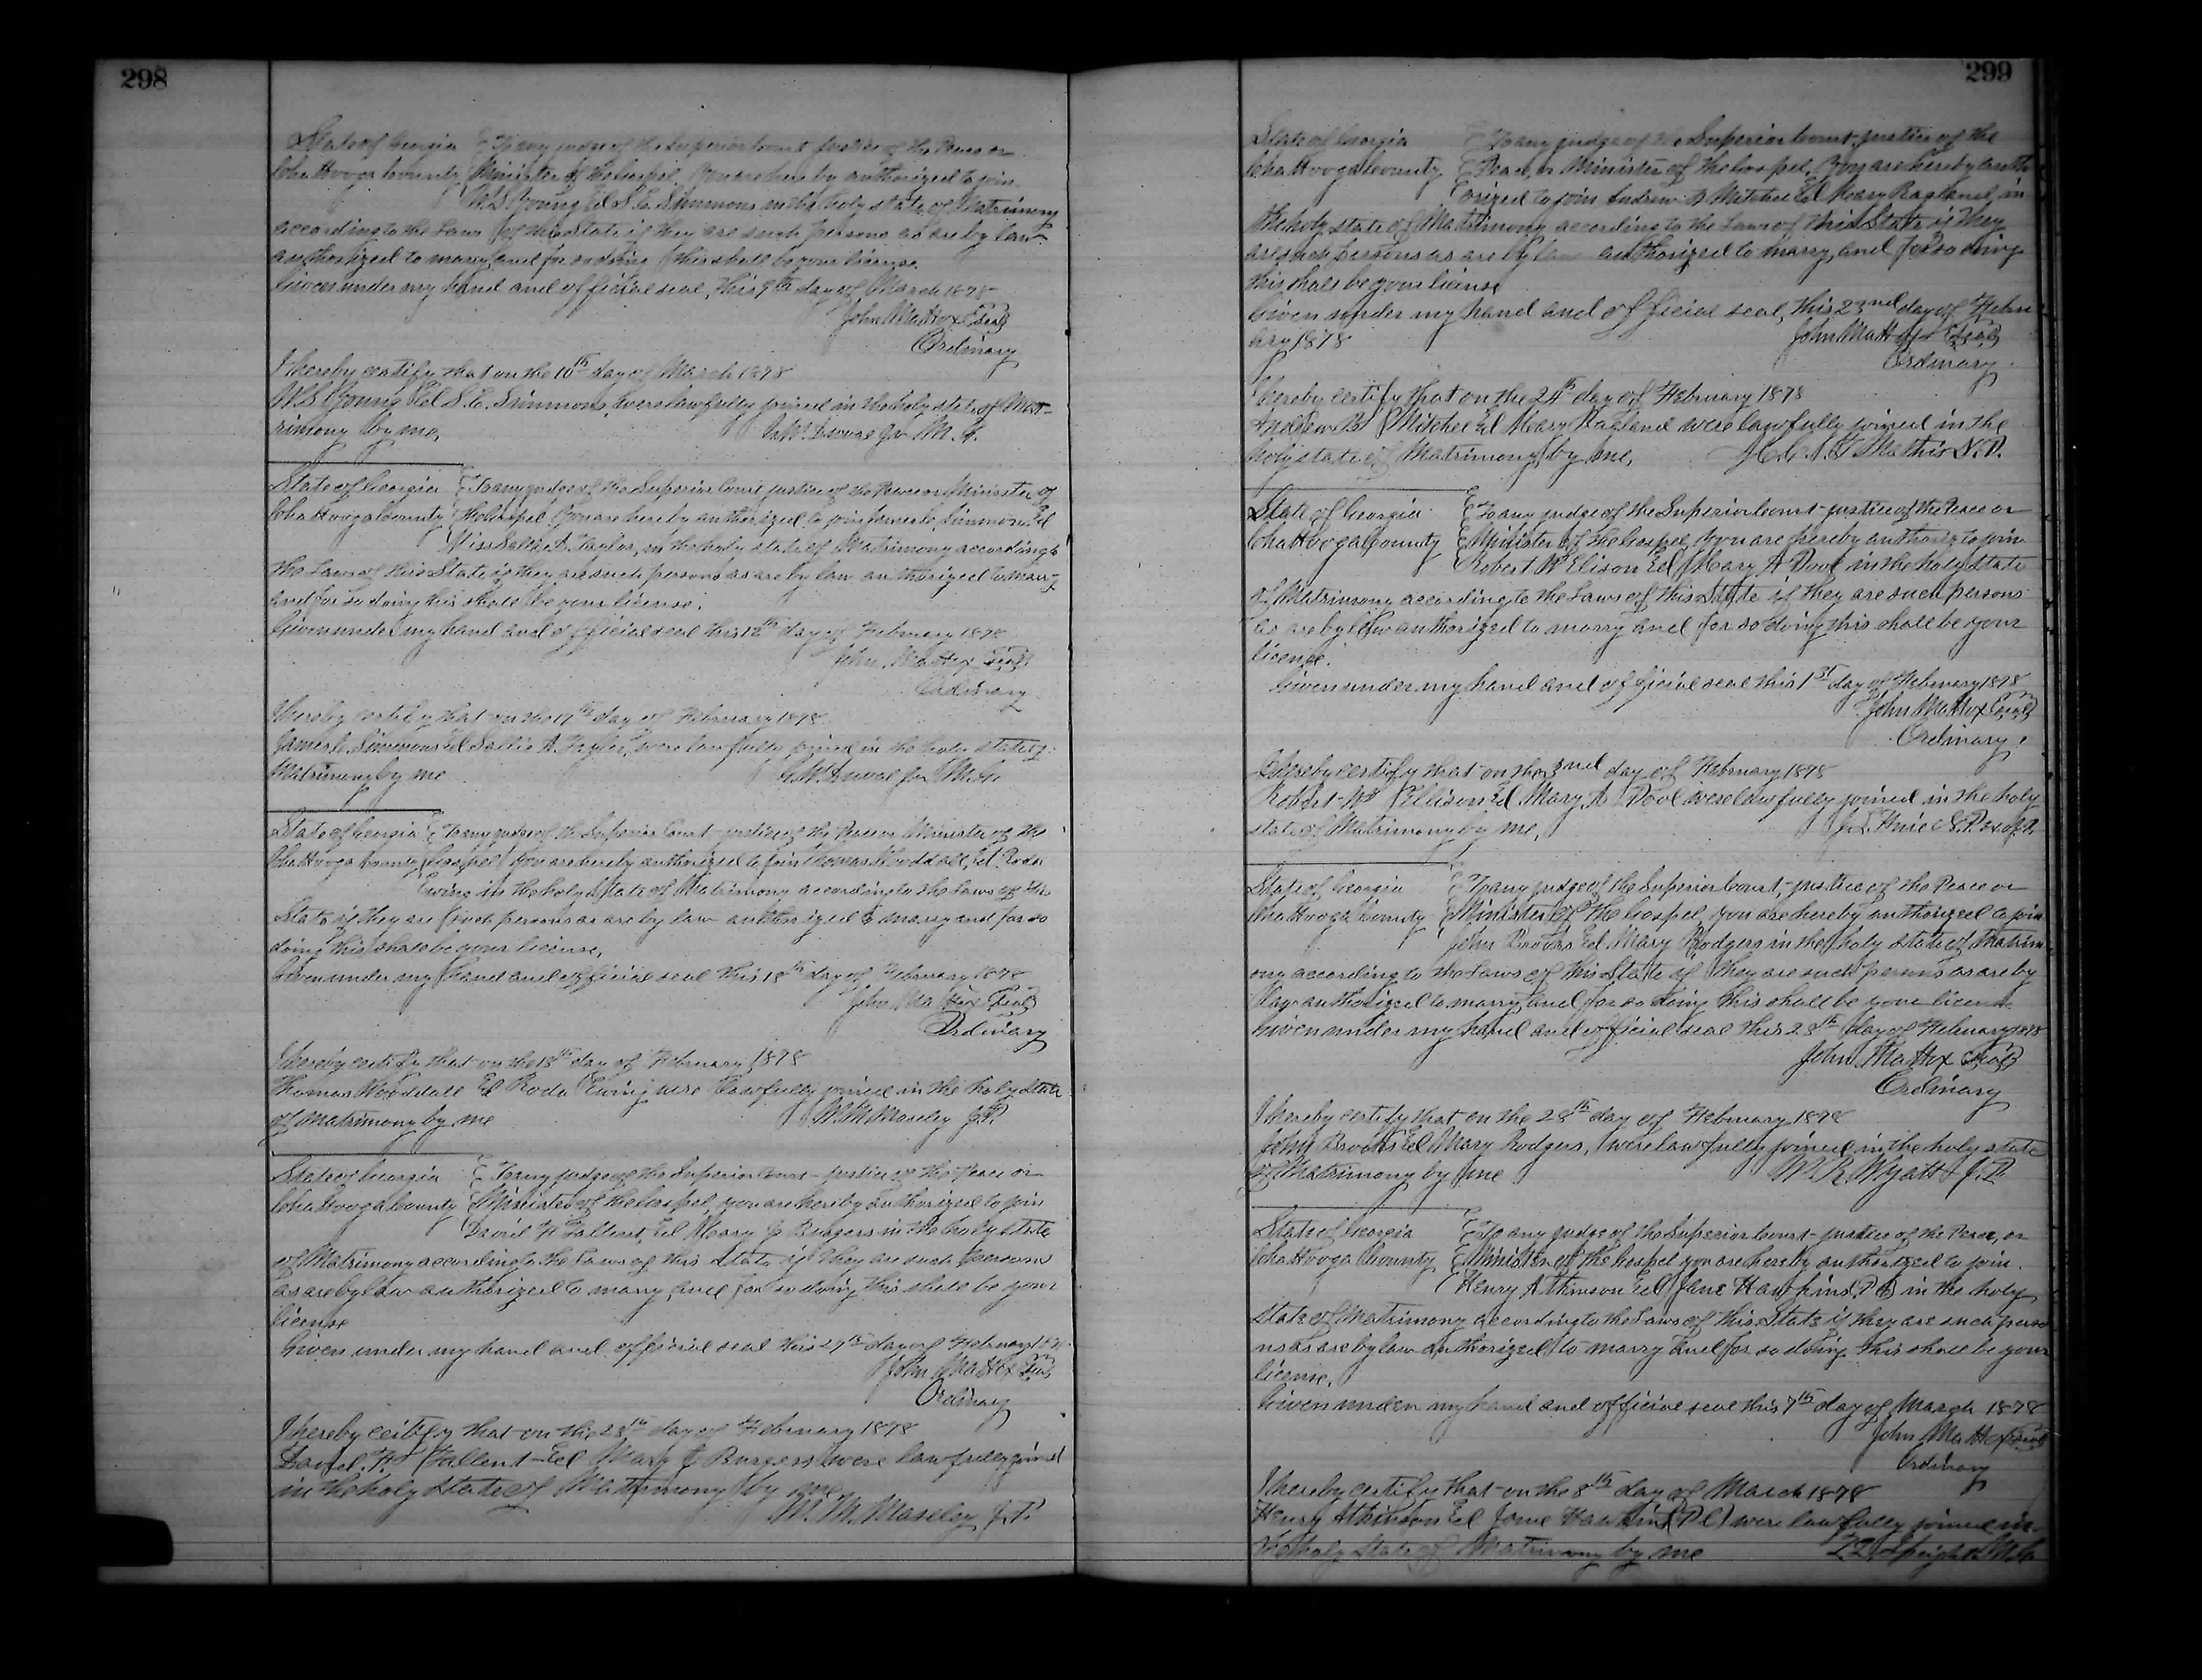 298
State of Georgia To any judge of the Superior Court justice of the Peace or
Chattooga County Minister of the Gospel. You are hereby authorized to join
W.S. Young Ed S.E. Simmons in the holy state of Matrimony
according to the Laws of this State if they are such persons as are by law
authorized to marry, and for so doing this shall be your license.
Given under my hand and official seal, this 9th day of March 1878
John Mattox Seal
Ordinary
I hereby certify that on the 10th day of March 1878
W.S. Young Ed S.E. Simmons, were lawfully joined in the holy state of Mat-
rimony by me,
State of Georgia To any judge of the Superior Court justice of the Peace or Minister of
Chattooga County the Gospel. You are hereby authorized to join James C. Simmons Ed
Miss Sallie A. Taylor, in the holy state of Matrimony according to
the Laws of this State if they are such persons as are by law authorized to marry
and for so doing this shall be your license.
Given under my hand and official seal this 12th day of February 1878
John Mattox Seal
Ordinary
I hereby certify that on the 17th day of February 1878
James C. Simmons Ed Sallie A. Taylor, were lawfully joined in the holy state of
Matrimony by me
State of Georgia To any judge of the Superior Court justice of the Peace or Minister of the
Chattooga County Gospel you are hereby authorized to join Thomas Wooddall, Ed Roda
Ewing in the holy State of Matrimony according to the Laws of the
State if they are such persons as are by law authorized to marry and for so
doing this shall be your license,
Given under my hand and official seal this 18th day of February 1878
John Mattox Seal
Ordinary
I hereby certify that on the 18th day of February 1878
Thomas Wooddall Ed Roda Ewing were Lawfully joined in the holy State
of Matrimony by me W.M. Moseley J.P.
State of Georgia To any judge of the Superior Court justice of the Peace or
Chattooga County Minister of the Gospel, you are hereby authorized to join
David H Fallent, Ed Mary J Burgess in the holy state
of Matrimony according to the Laws of this State if they are such persons
as are by law authorized to marry, and for so doing this shall be your
license
Given under my hand and official seal this 27th day of February 1878
John Mattox Seal
Ordinary
I hereby certify that on the 28th day of February 1878
David. H. Fallent Ed Mary J Burgess were lawfully joined
in the holy state of Matrimony by me
W. M. Maseley J.P.
299
State of Georgia To any judge of the Superior Court justice of the
Chattooga County Peace, or Minister of the Gospel, You are hereby auth
orized to join Andrew B Mitchel Ed Mary Ragland, in
the holy state of Matrimony according to the Laws of this State if they
are such persons as are by law authorized to marry, and for so doing
this shall be your license
Given under my hand and official seal, this 23nd day of Febru
ary 1878 John Mattox Seal
Ordinary
I hereby certify that on the 24th day of February 1878
Andrew B Mitchel Ed Mary Ragland were lawfully joined in the
holy state of Matrimony by me, Mathis N.P.
State of Georgia To any judge of the Superior Court justice of the Peace or
Chattooga County Minister of the Gospel, you are hereby authoriz to join
Robert W Elison Ed Mary A Pool in the holy state
of Matrimony according to the Laws of this State if they are such persons
as are by law authorized to marry and for so doing this shall be your
license.
Given under my hand and official seal this 1st day of February 1878
John Mattox Seal
Ordinary
I hereby certify that on the 3nd day of February 1878
Robert W Ellison Ed Mary A Pool were lawfully joined in the holy
state of Matrimony by me,
State of Georgia To any judge of the Superior Court, justice of the Peace or
Chattooga County Minister of the Gospel, you are hereby authorized to join
John Brooks Ed Mary Rodgers in the holy state of Matrim
ony according to the Laws of this State if they are such persons as are by
Law authorized to marry, and for so doing this shall be your license
Given under my hand and official seal this 28th day of February 1878
John Mattox Seal
Ordinary
I hereby certify that on the 28th day of February 1878
John Brooks Ed Mary Rodgers, were lawfully joined in the holy state
of Matrimony by me W. R. Wyatt J.P.
State of Georgia To any judge of the Superior Court justice of the Peace, or
Chattooga County Minister of the Gospel you are hereby authorized to join
Henry Atkinson Ed Jane Hawkins (P C) in the holy
state of Matrimony according to the Laws of this State if they are such perso
ns as are by law authorized to marry and for so doing this shall be your
license.
Given under my hand and official seal this 7th day of March 1878
John Mattox Seal
Ordinary
I hereby certify that on the 8th day of March 1878
Henry Atkinson Ed Jane Hawkins (P C) were lawfully joined in
the holy State of Matrimony by me